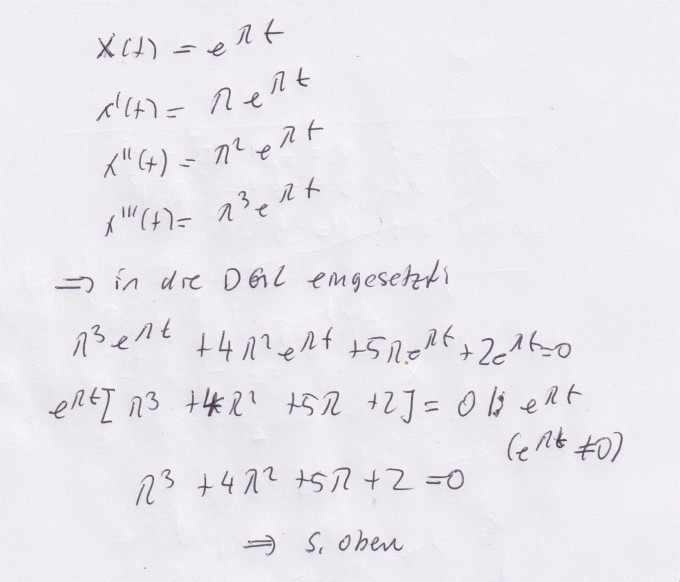 x(t) = e^λt
x'(t) = λ e^λt
x''(t) = λ² e^λt
x'''(t) = λ³ e^λt
⇒ in die DGL eingesetzt:
λ³ e^λt + 4 λ² e^λt + 5 λ e^λt + 2 e^λt = 0
e^λt [ λ³ + 4 λ² + 5 λ + 2 ] = 0 |: e^λt
(e^λt ≠ 0)
λ³ + 4 λ² + 5 λ + 2 = 0
⇒ s. oben